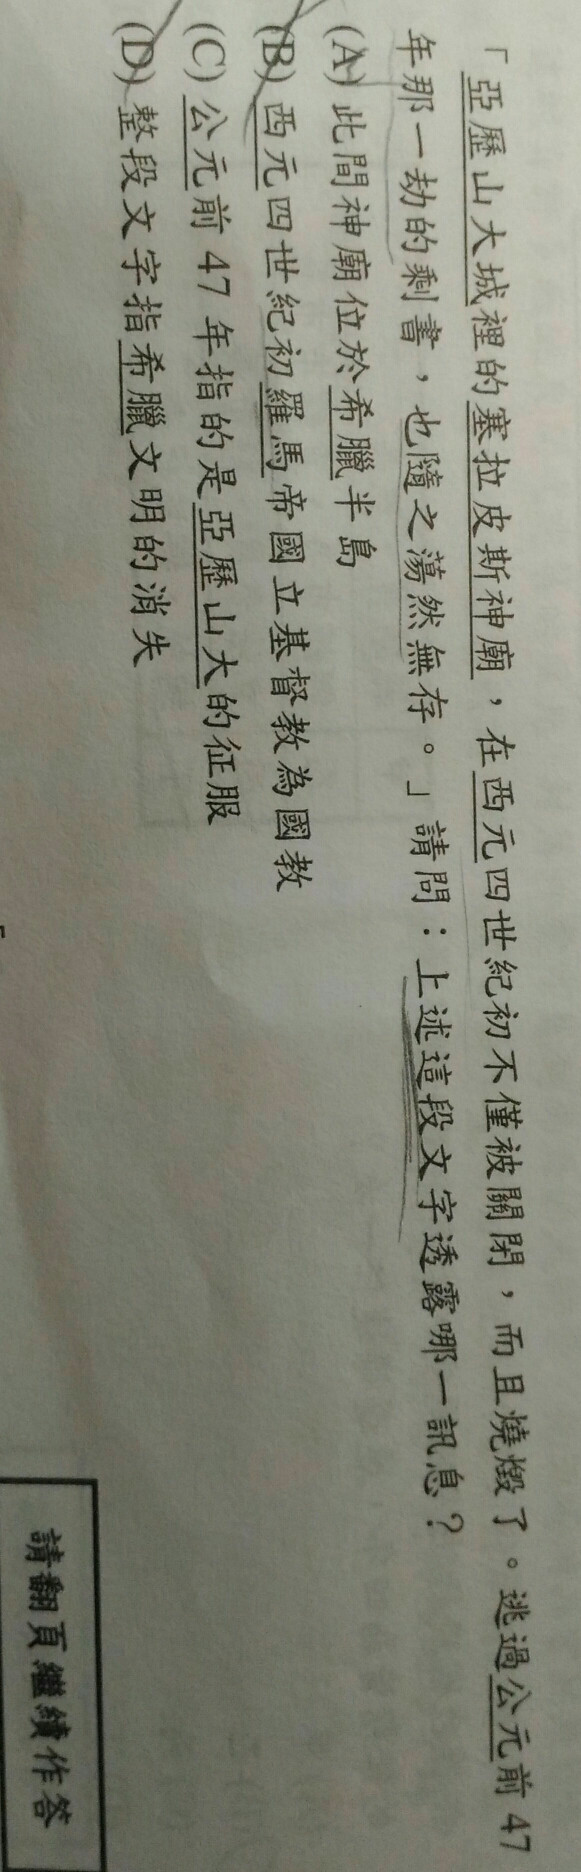 「亞歷山大城裡的塞拉皮斯神廟，在西元四世紀初不僅被關閉，而且燒燬了。逃過公元前 47
年那一劫的剩書，也隨之蕩然無存。」請問：上述這段文字透露哪一訊息？
(A) 此間神廟位於希臘半島
(B) 西元四世紀初羅馬帝國立基督教為國教
(C) 公元前 47 年指的是亞歷山大的征服
(D) 整段文字指希臘文明的消失
請翻頁繼續作答